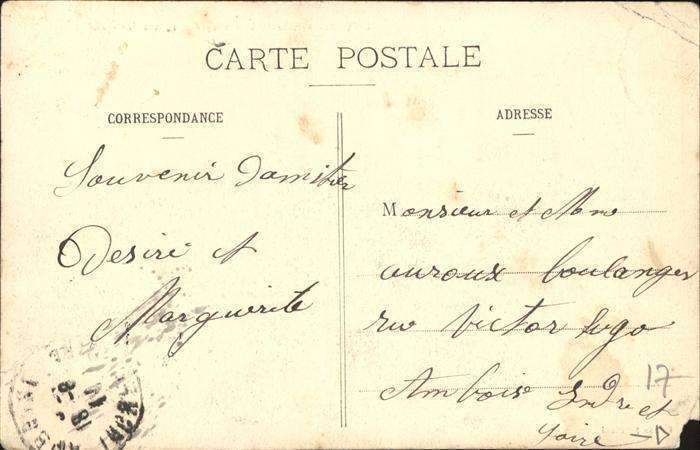 CARTE POSTALE
CORRESPONDANCE
ADRESSE
Souvenir damitier
Desire et
Marguerite
Monsieur et Mme
auroux boulanger
rue Victor hugo
Amboise Indre et
Loire
17